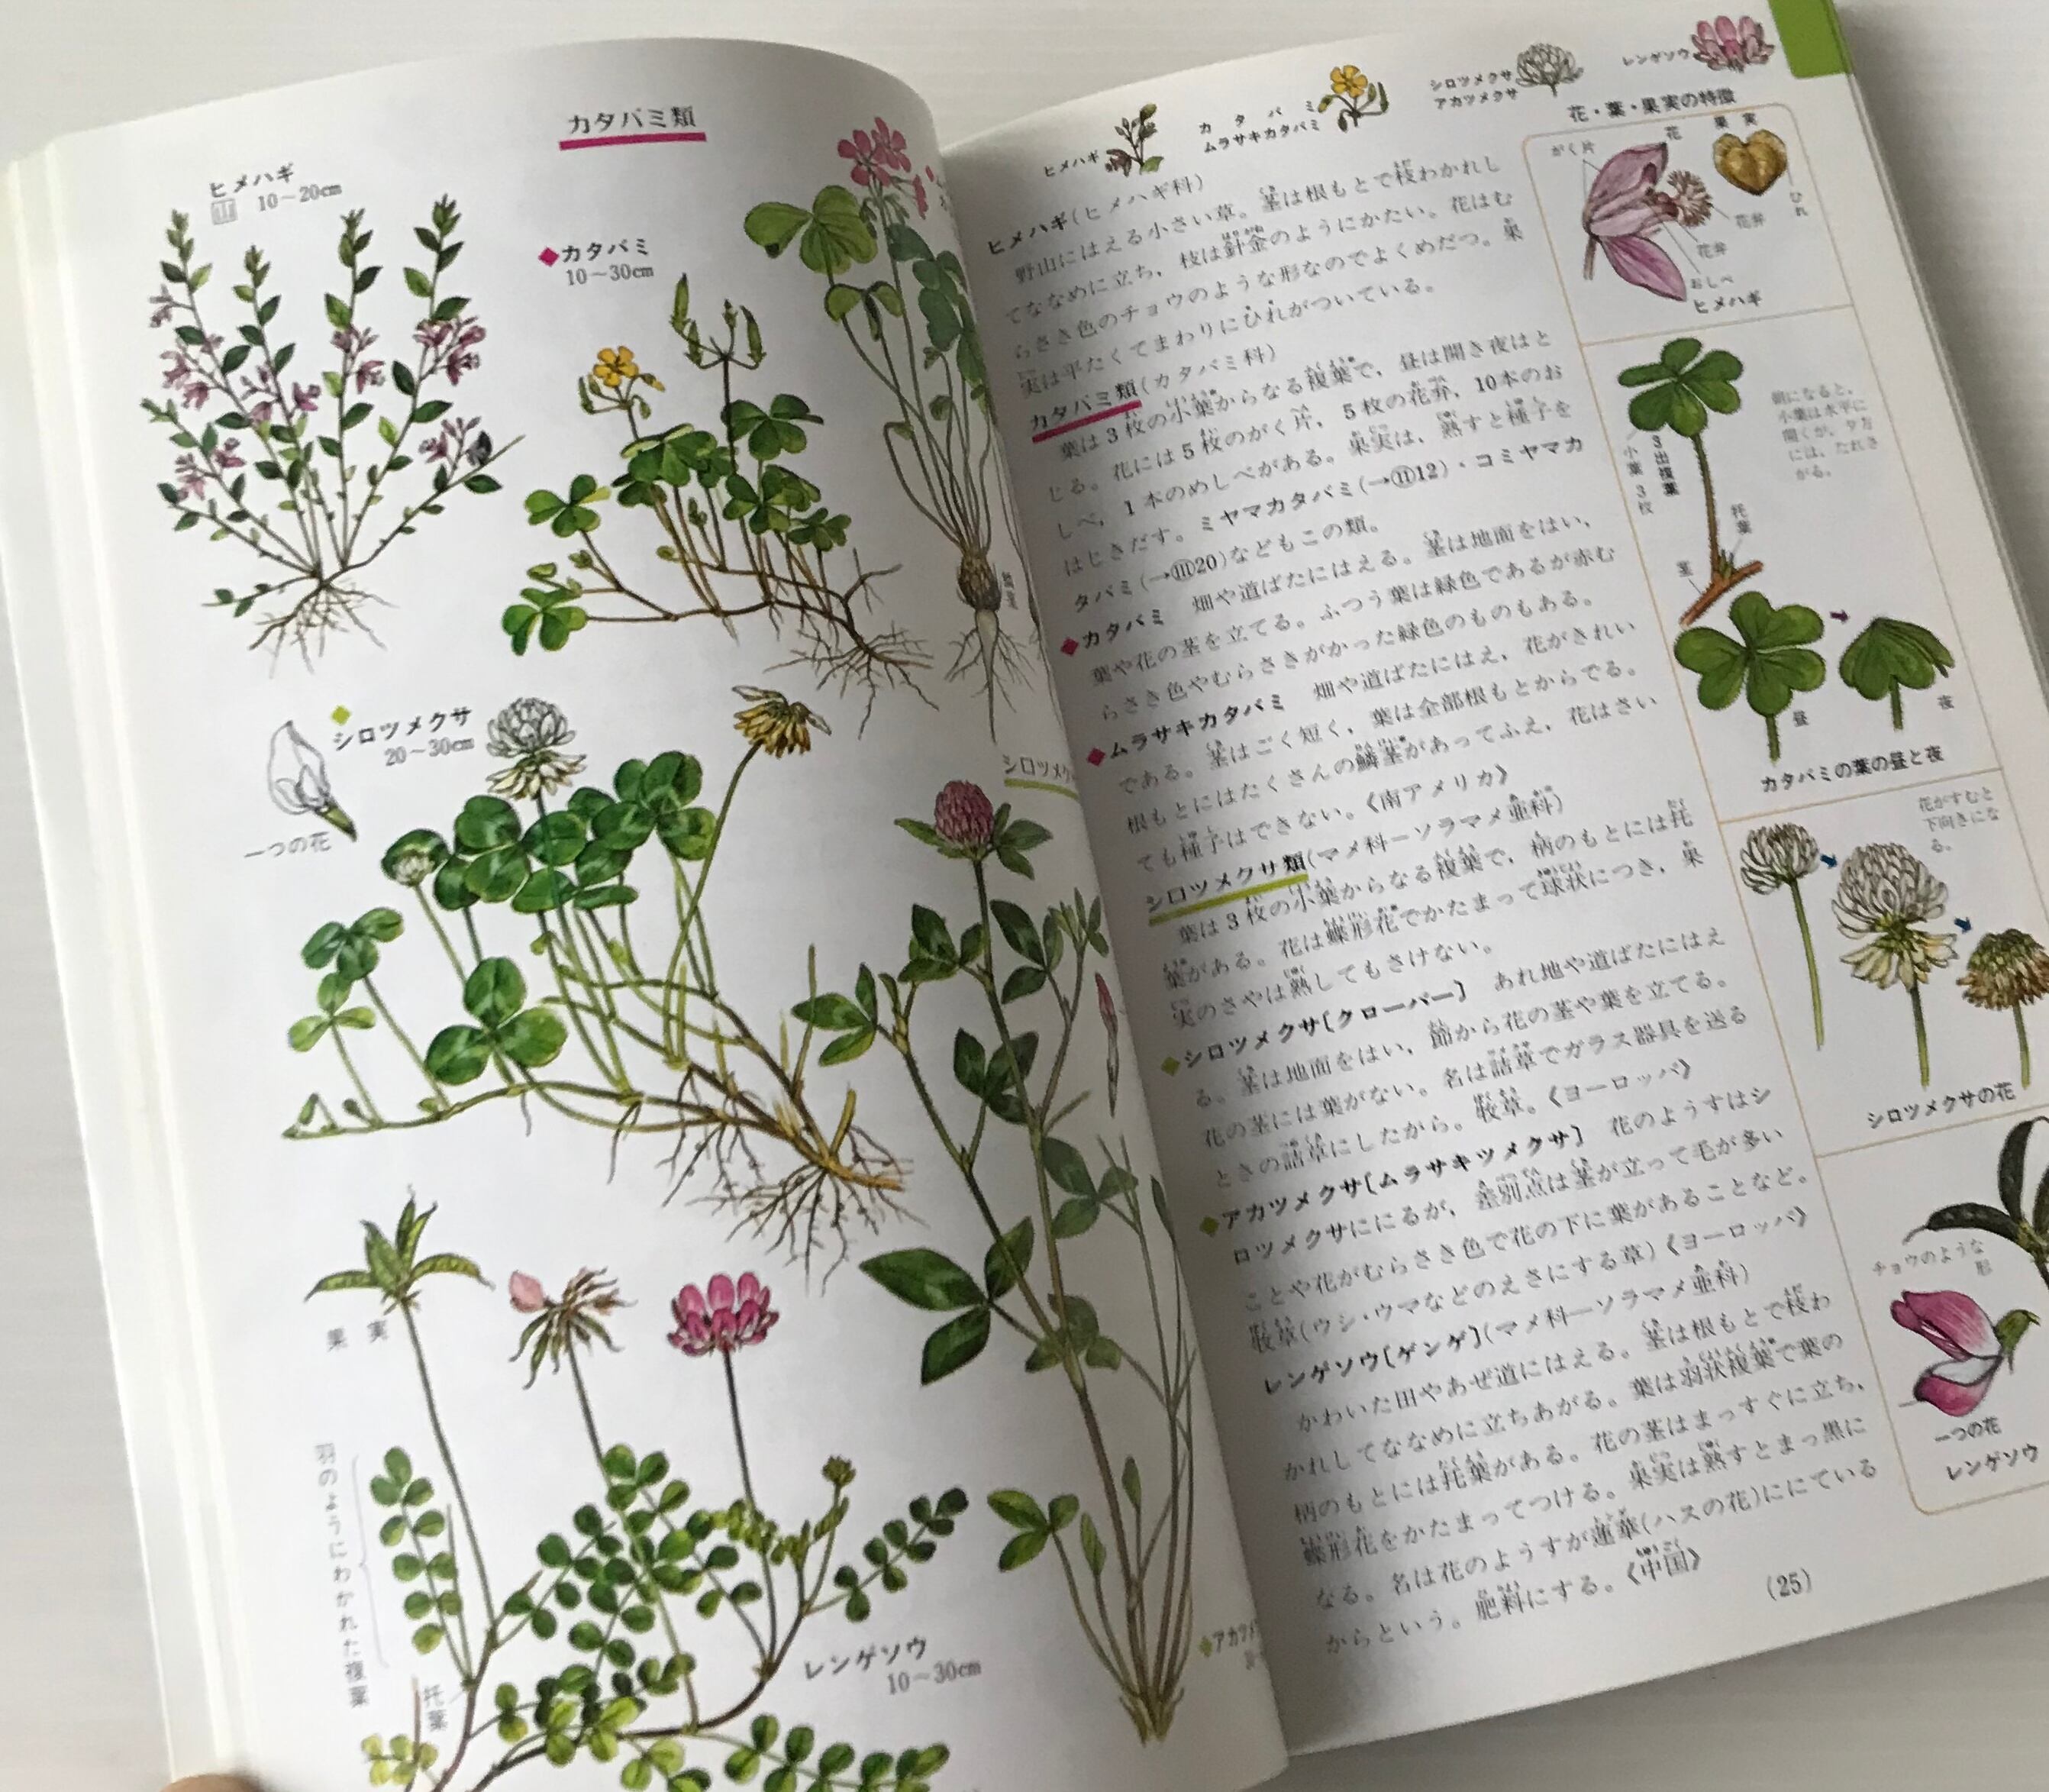 カタバミ類
ヒメハギ
山 10〜20cm
カタバミ
10〜30cm
シロツメクサ
20〜30cm
一つの花
シロツメク
果実
羽のようにわかれた複葉
托葉
レンゲソウ
10〜30cm
アカツメ
ヒメハギ
カタバミ
ムラサキカタバミ
シロツメクサ
アカツメクサ
レンゲソウ
ヒメハギ(ヒメハギ科)
野山にはえる小さい草。茎は根もとで枝わかれし
てななめに立ち，枝は針金のようにかたい。花はむ
らさき色のチョウのような形なのでよくめだつ。果
実は平たくてまわりにひれがついている。
カタバミ類(カタバミ科)
葉は3枚の小葉からなる複葉で，昼は開き夜はと
じる。花には5枚のがく片，5枚の花弁，10本のお
しべ，1本のめしべがある。果実は，熟すと種子を
はじきだす。ミヤマカタバミ(→⑪12)・コミヤマカ
タバミ(→⑪20)などもこの類。
カタバミ 畑や道ばたにはえる。茎は地面をはい，
葉や花の茎を立てる。ふつう葉は緑色であるが赤む
らさき色やむらさきがかった緑色のものもある。
ムラサキカタバミ 畑や道ばたにはえ，花がきれい
である。茎はごく短く，葉は全部根もとからでる。
根もとにはたくさんの鱗茎があってふえ，花はさい
ても種子はできない。《南アメリカ》
シロツメクサ類(マメ科―ソラマメ亜科)
葉は3枚の小葉からなる複葉で，柄のもとには托
葉がある。花は蝶形花でかたまって球状につき，果
実のさやは熟してもさけない。
シロツメクサ〔クローバー〕 あれ地や道ばたにはえ
る。茎は地面をはい，節から花の茎や葉を立てる。
花の茎には葉がない。名は詰草でガラス器具を送る
ときの詰草にしたから。牧草。《ヨーロッパ》
アカツメクサ〔ムラサキツメクサ〕 花のようすはシ
ロツメクサににるが，差別点は茎が立って毛が多い
ことや花がむらさき色で花の下に葉があることなど。
牧草(ウシ・ウマなどのえさにする草)《ヨーロッパ》
レンゲソウ〔ゲンゲ〕(マメ科―ソラマメ亜科)
かわいた田やあぜ道にはえる。茎は根もとで枝わ
かれしてななめに立ちあがる。葉は羽状複葉で葉の
柄のもとには托葉がある。花の茎はまっすぐに立ち，
蝶形花をかたまってつける。果実は熟すとまっ黒に
なる。名は花のようすが蓮華(ハスの花)ににている
からという。肥料にする。《中国》
(25)
花・葉・果実の特徴
がく片
花
果実
ひれ
花弁
花弁
おしべ
ヒメハギ
朝になると，
小葉は水平に
開くが，夕方
には，たれさ
がる。
3出複葉
小葉3枚
托葉
茎
昼
夜
カタバミの葉の昼と夜
花がすむと
下向きにな
る。
シロツメクサの花
チョウのような
形
一つの花
レンゲソウ